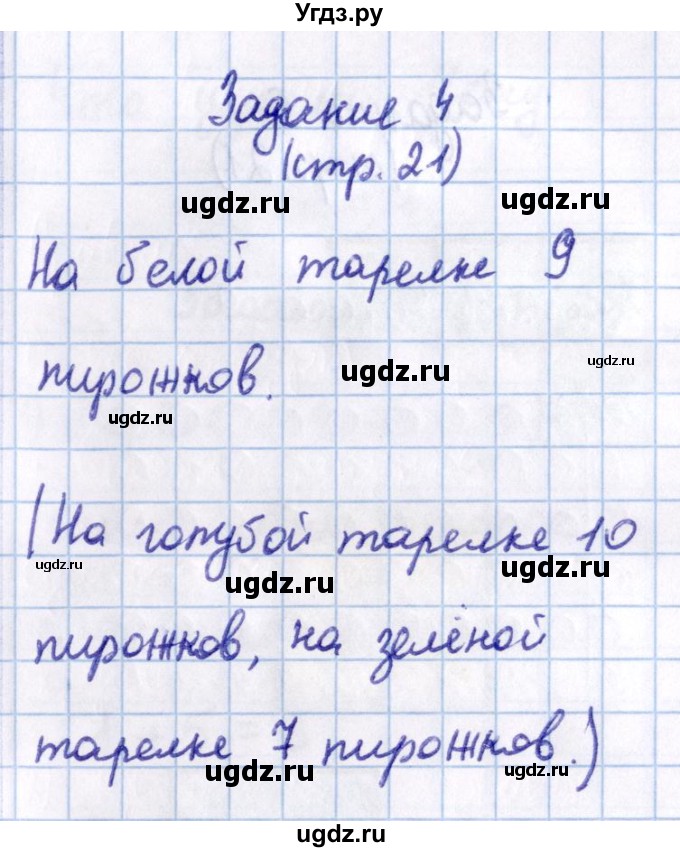 Угдз.ру
Задание 4
(стр. 21)
ugdz.ru ugdz.ru
На белой тарелке 9
ugdz.ru ugdz.ru
пирожков.
ugdz.ru
(На голубой тарелке 10
ugdz.ru ugdz.ru ugdz.ru
пирожков, на зелёной
тарелке 7 пирожков.)
ugdz.ru ugdz.ru
ugdz.ru